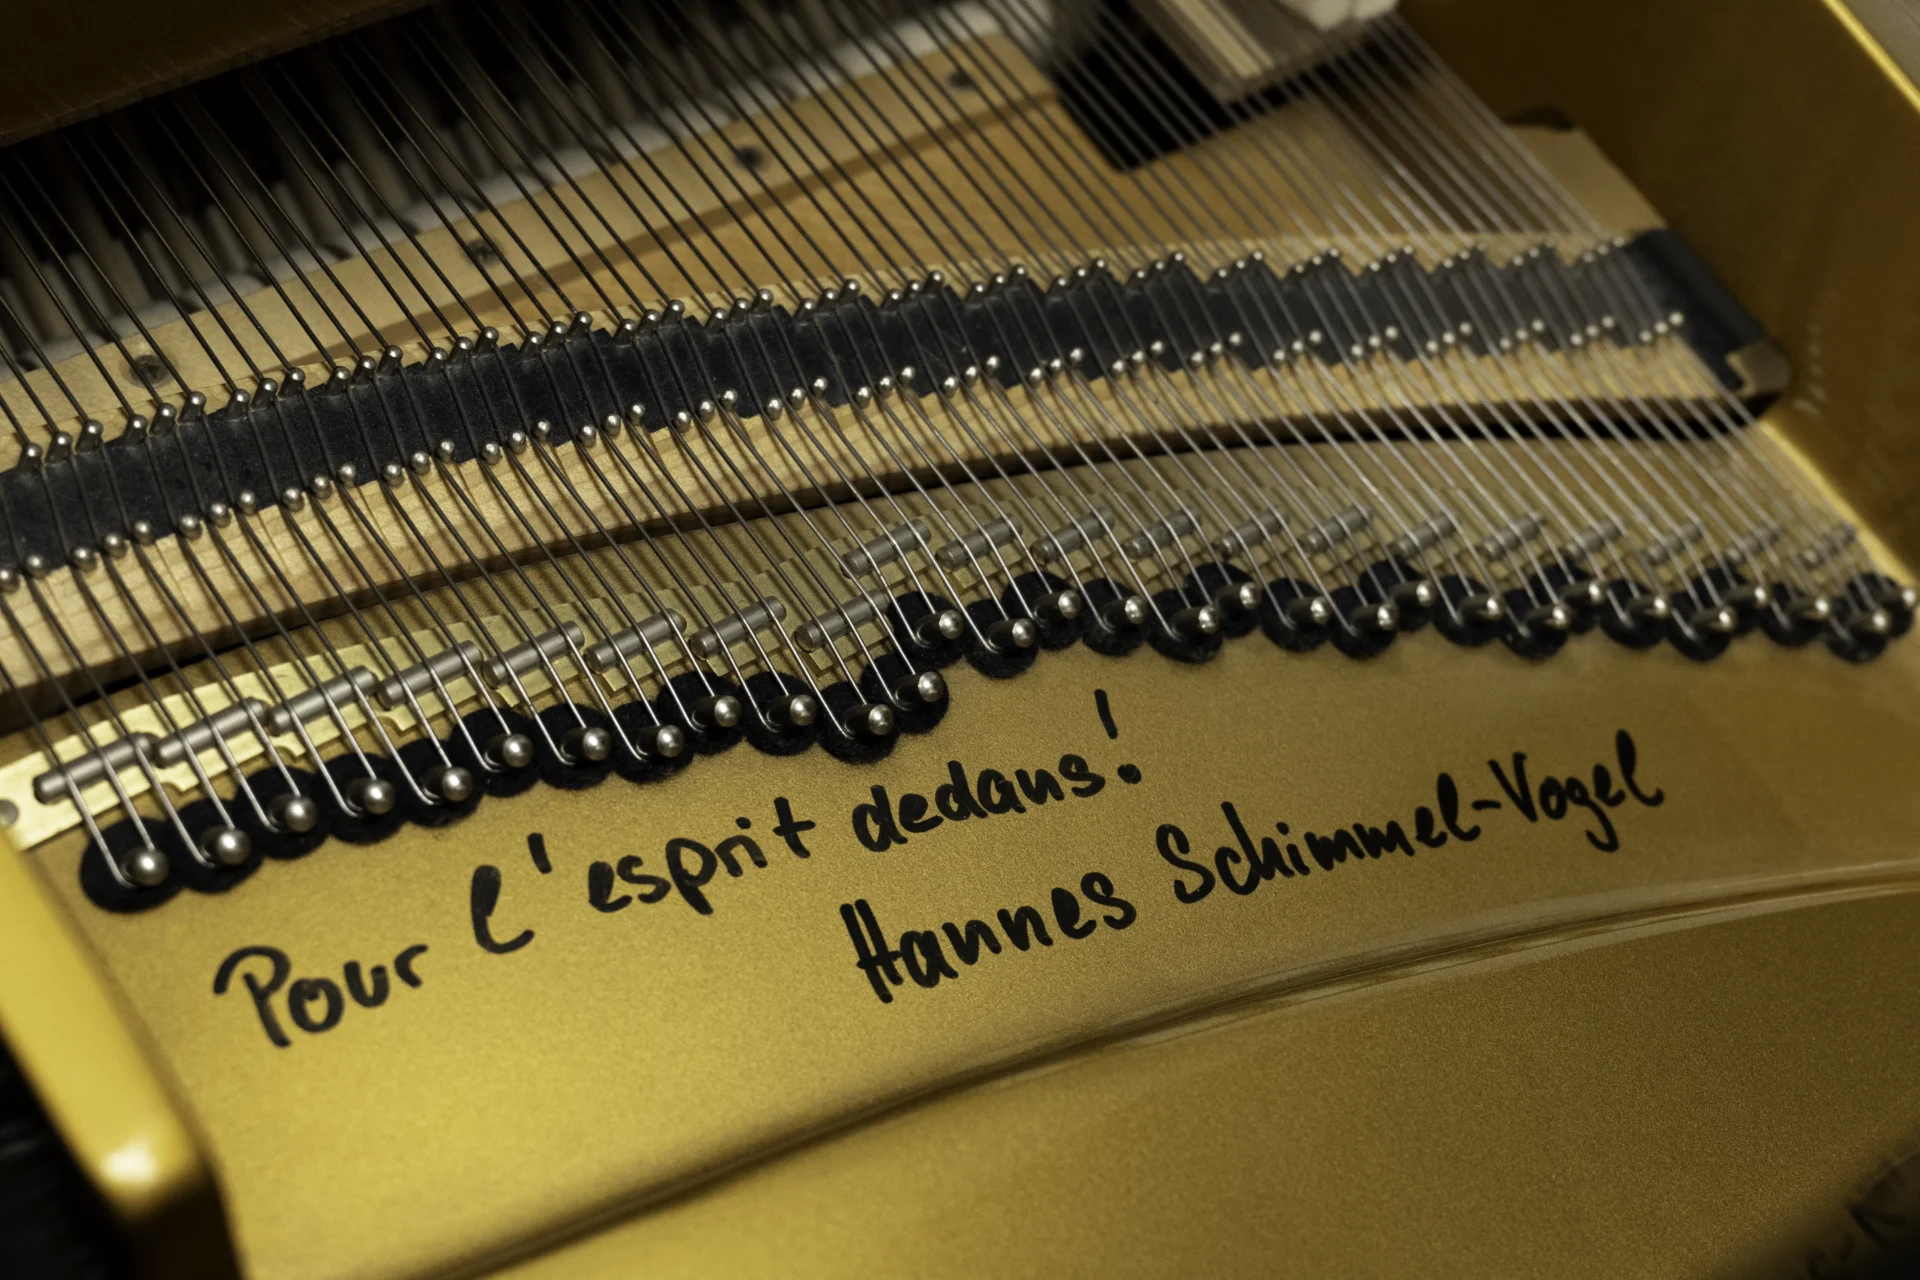 Pour l'esprit dedans!
Hannes Schimmel-Vogel